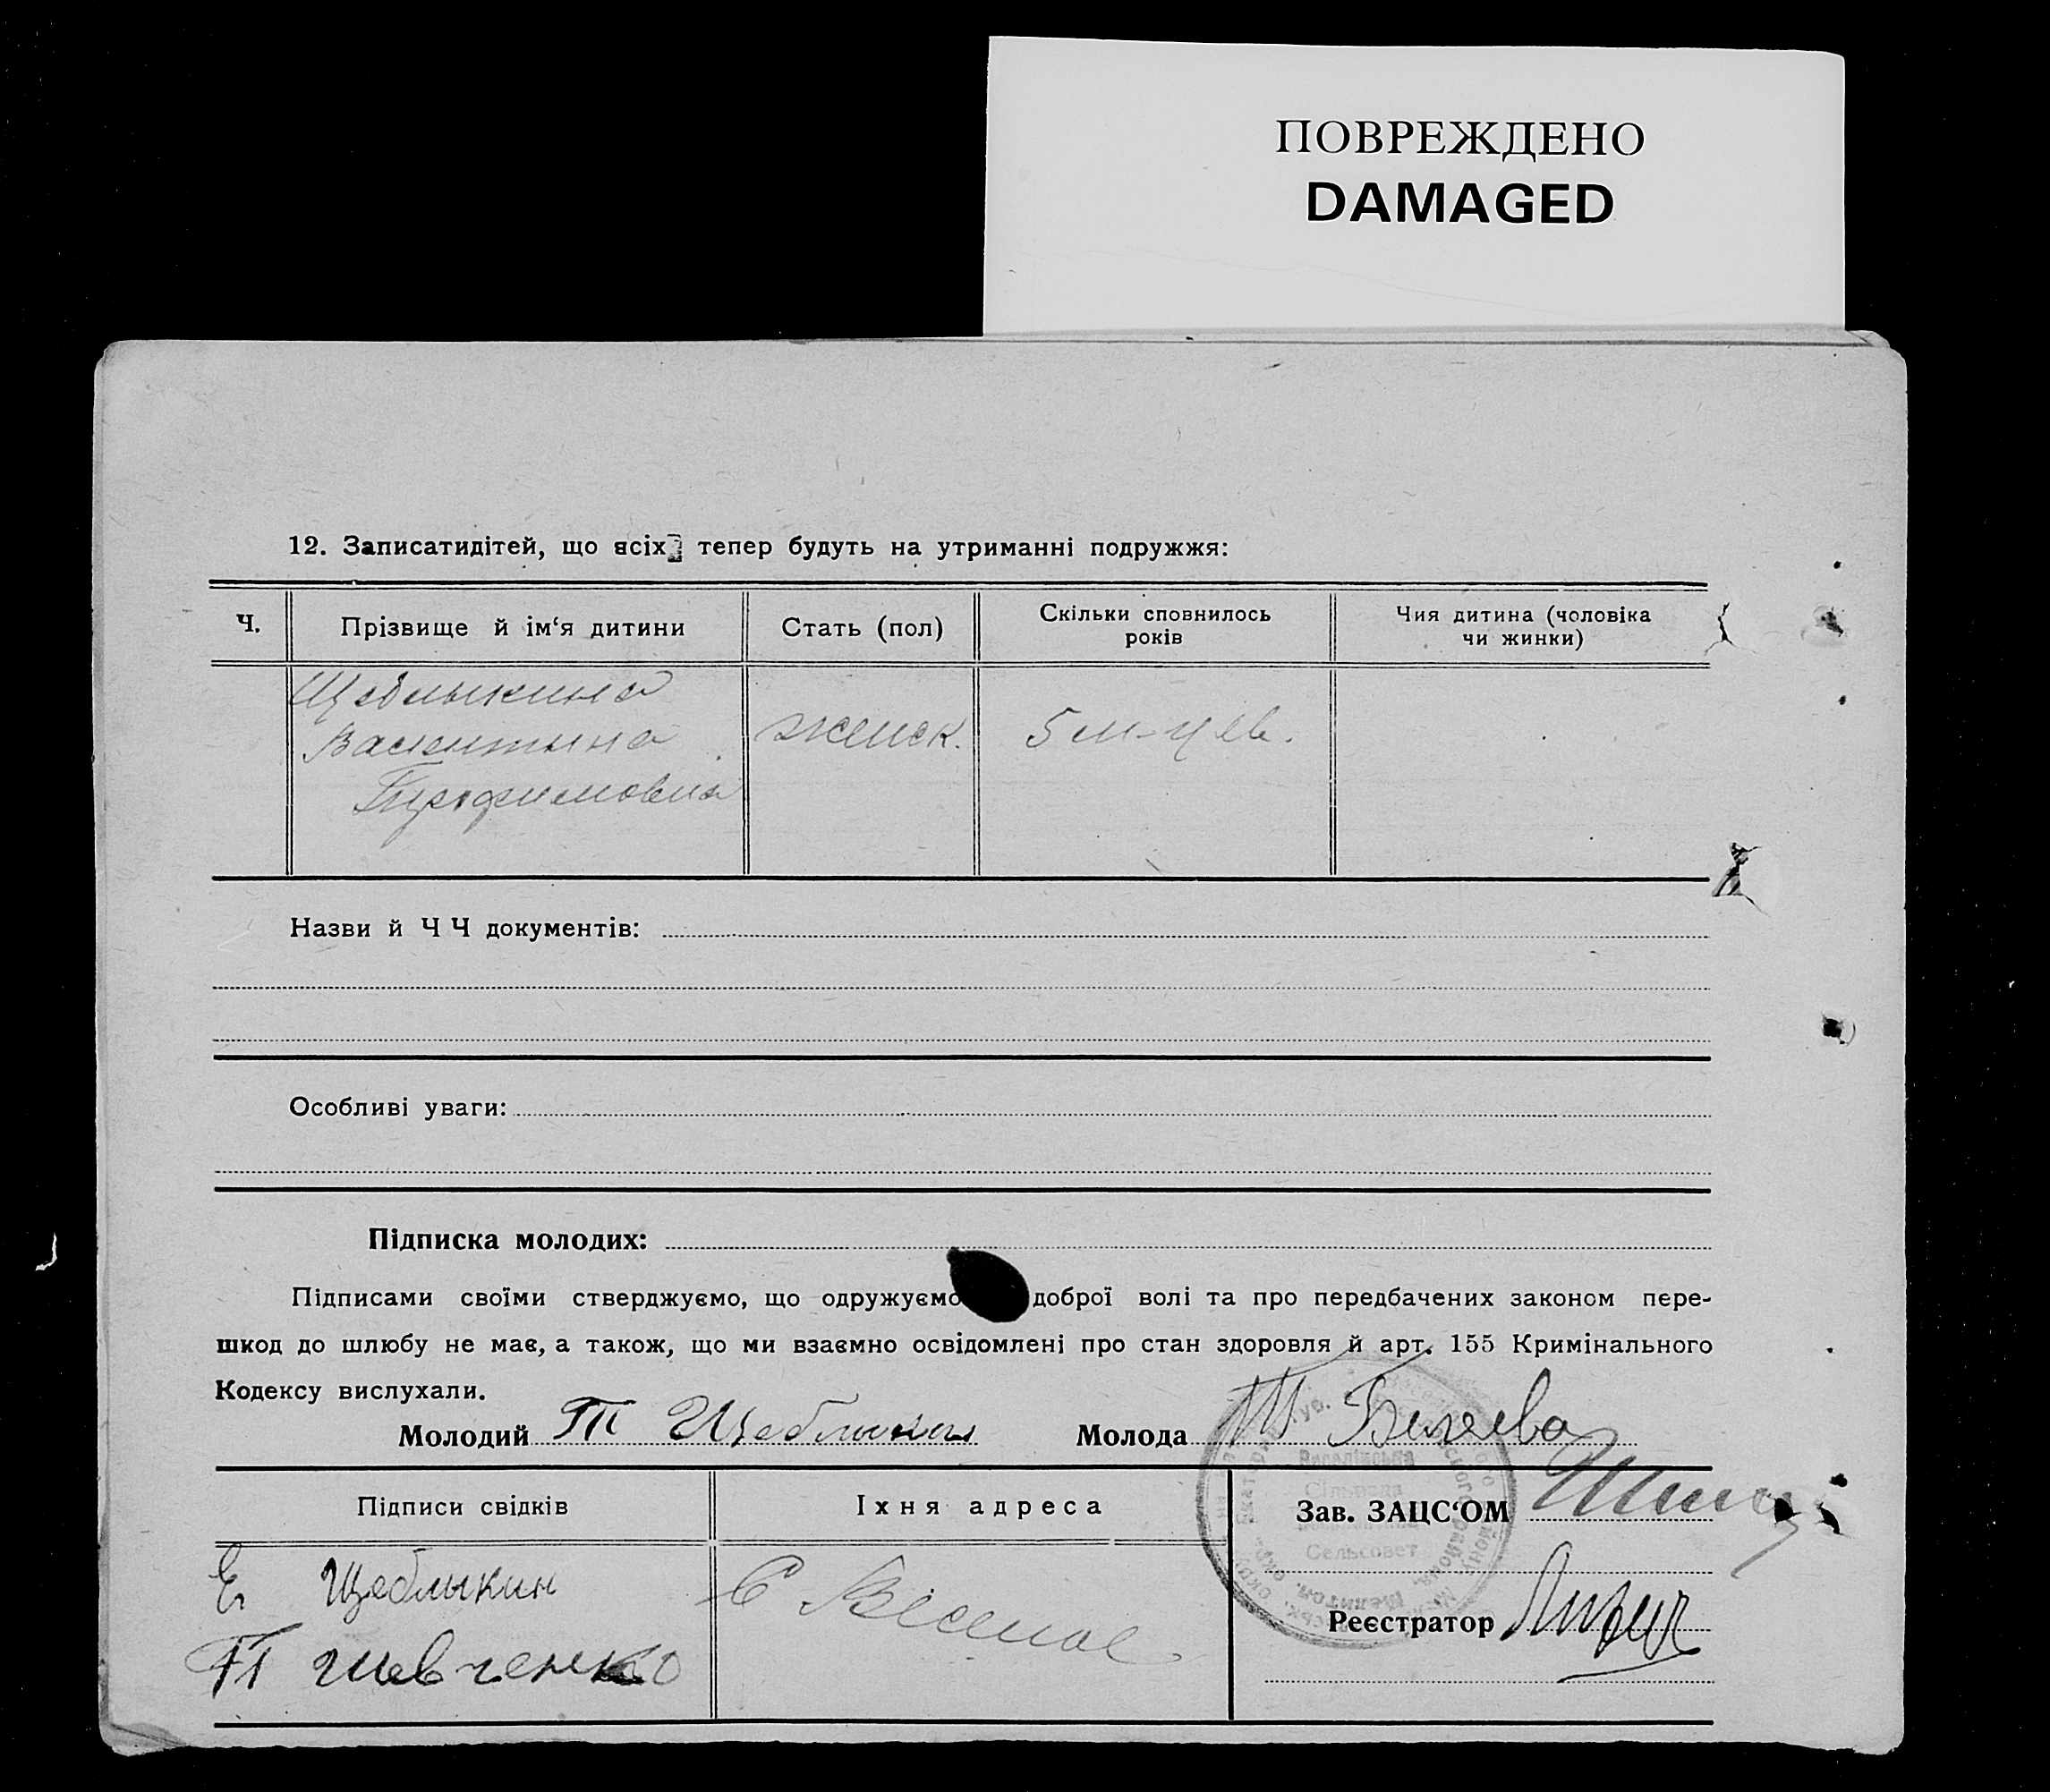 ПОВРЕЖДЕНО
DAMAGED
12. Записатидітей, що всіх тепер будуть на утриманні подружжя:
Ч. Прізвище й ім‘я дитини Стать (пол) Скільки сповнилось років Чия дитина (чоловіка чи жинки)
Щеблыкина женск. 5 м-цев.
Валентина
Трофимовна
Назви й Ч Ч документів:
Особливі уваги:
Підписка молодих:
Підписами своїми стверджуємо, що одружуємо доброї волі та про передбачених законом пере-
шкод до шлюбу не має, а також, що ми взаємно освідомлені про стан здоровля й арт. 155 Кримінального
Кодексу вислухали.
Молодий Т Щеблыкин Молода
Підписи свідків Їхня адреса Зав. ЗАЦС‘ОМ
Е Щеблыкин С Веселое
П Шевченко Реєстратор
Сільрада
Сельсовет